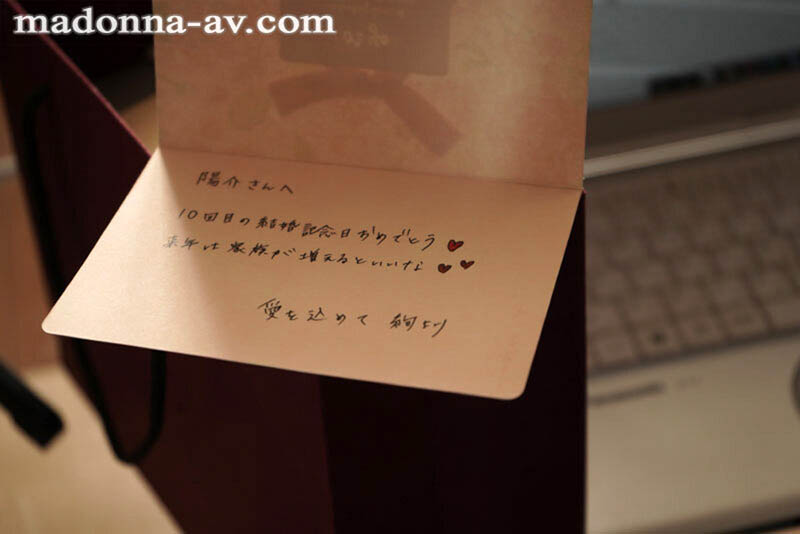 madonna-av.com
陽介さんへ
10回目の結婚記念日おめでとう
来年は家族が増えるといいな
愛を込めて 絢より